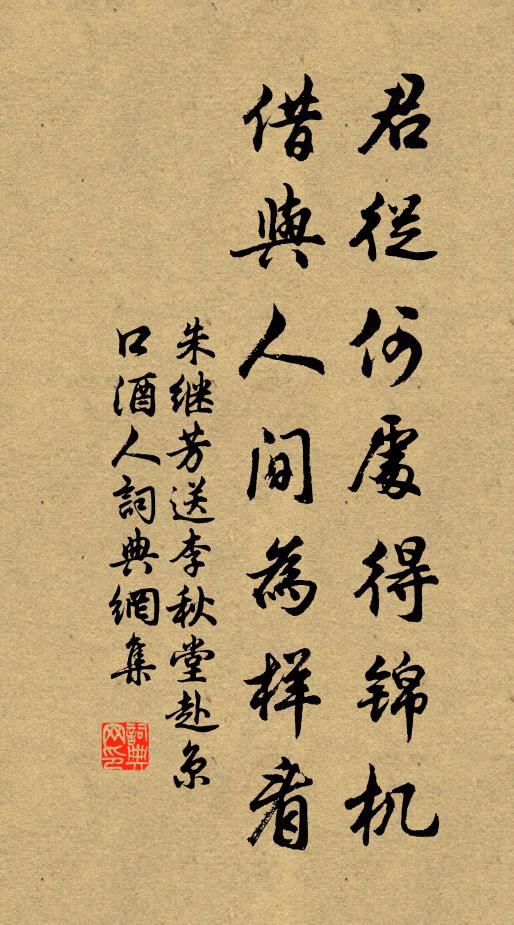 君從何處得錦机
借與人間為样看
朱继芳送李秋堂赴京
口酒人詞典網集
詞典
网印